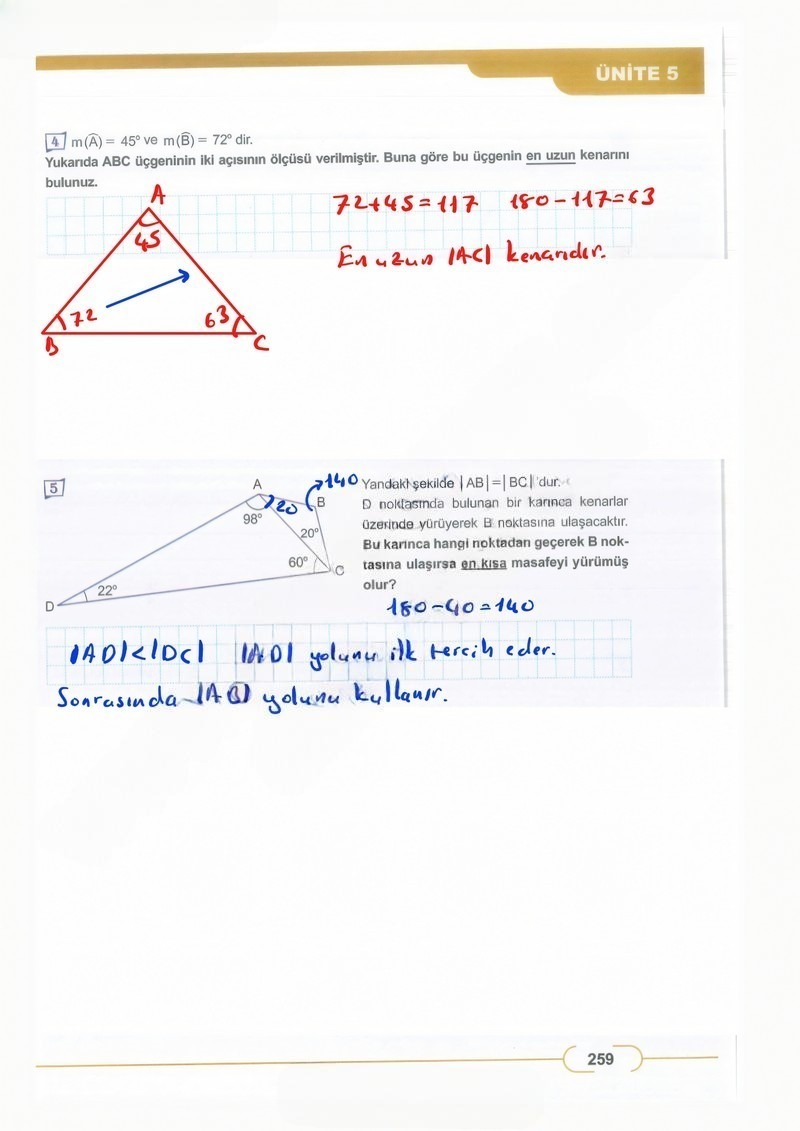 ÜNİTE 5
4 m(Â) = 45° ve m(B̂) = 72° dir.
Yukarıda ABC üçgeninin iki açısının ölçüsü verilmiştir. Buna göre bu üçgenin en uzun kenarını
bulunuz.
A
45
72
63
B
C
72+45=117 180-117=63
En uzun |AC| kenarıdır.
5
A
B
C
D
98°
20
140
20°
60°
22°
Yandaki şekilde |AB|=|BC| 'dur.
D noktasında bulunan bir karınca kenarlar
üzerinde yürüyerek B noktasına ulaşacaktır.
Bu karınca hangi noktadan geçerek B nok-
tasına ulaşırsa en kısa masafeyi yürümüş
olur?
180-40=140
|AD|<|DC| |AD| yolunu ilk tercih eder.
Sonrasında |AB| yolunu kullanır.
259